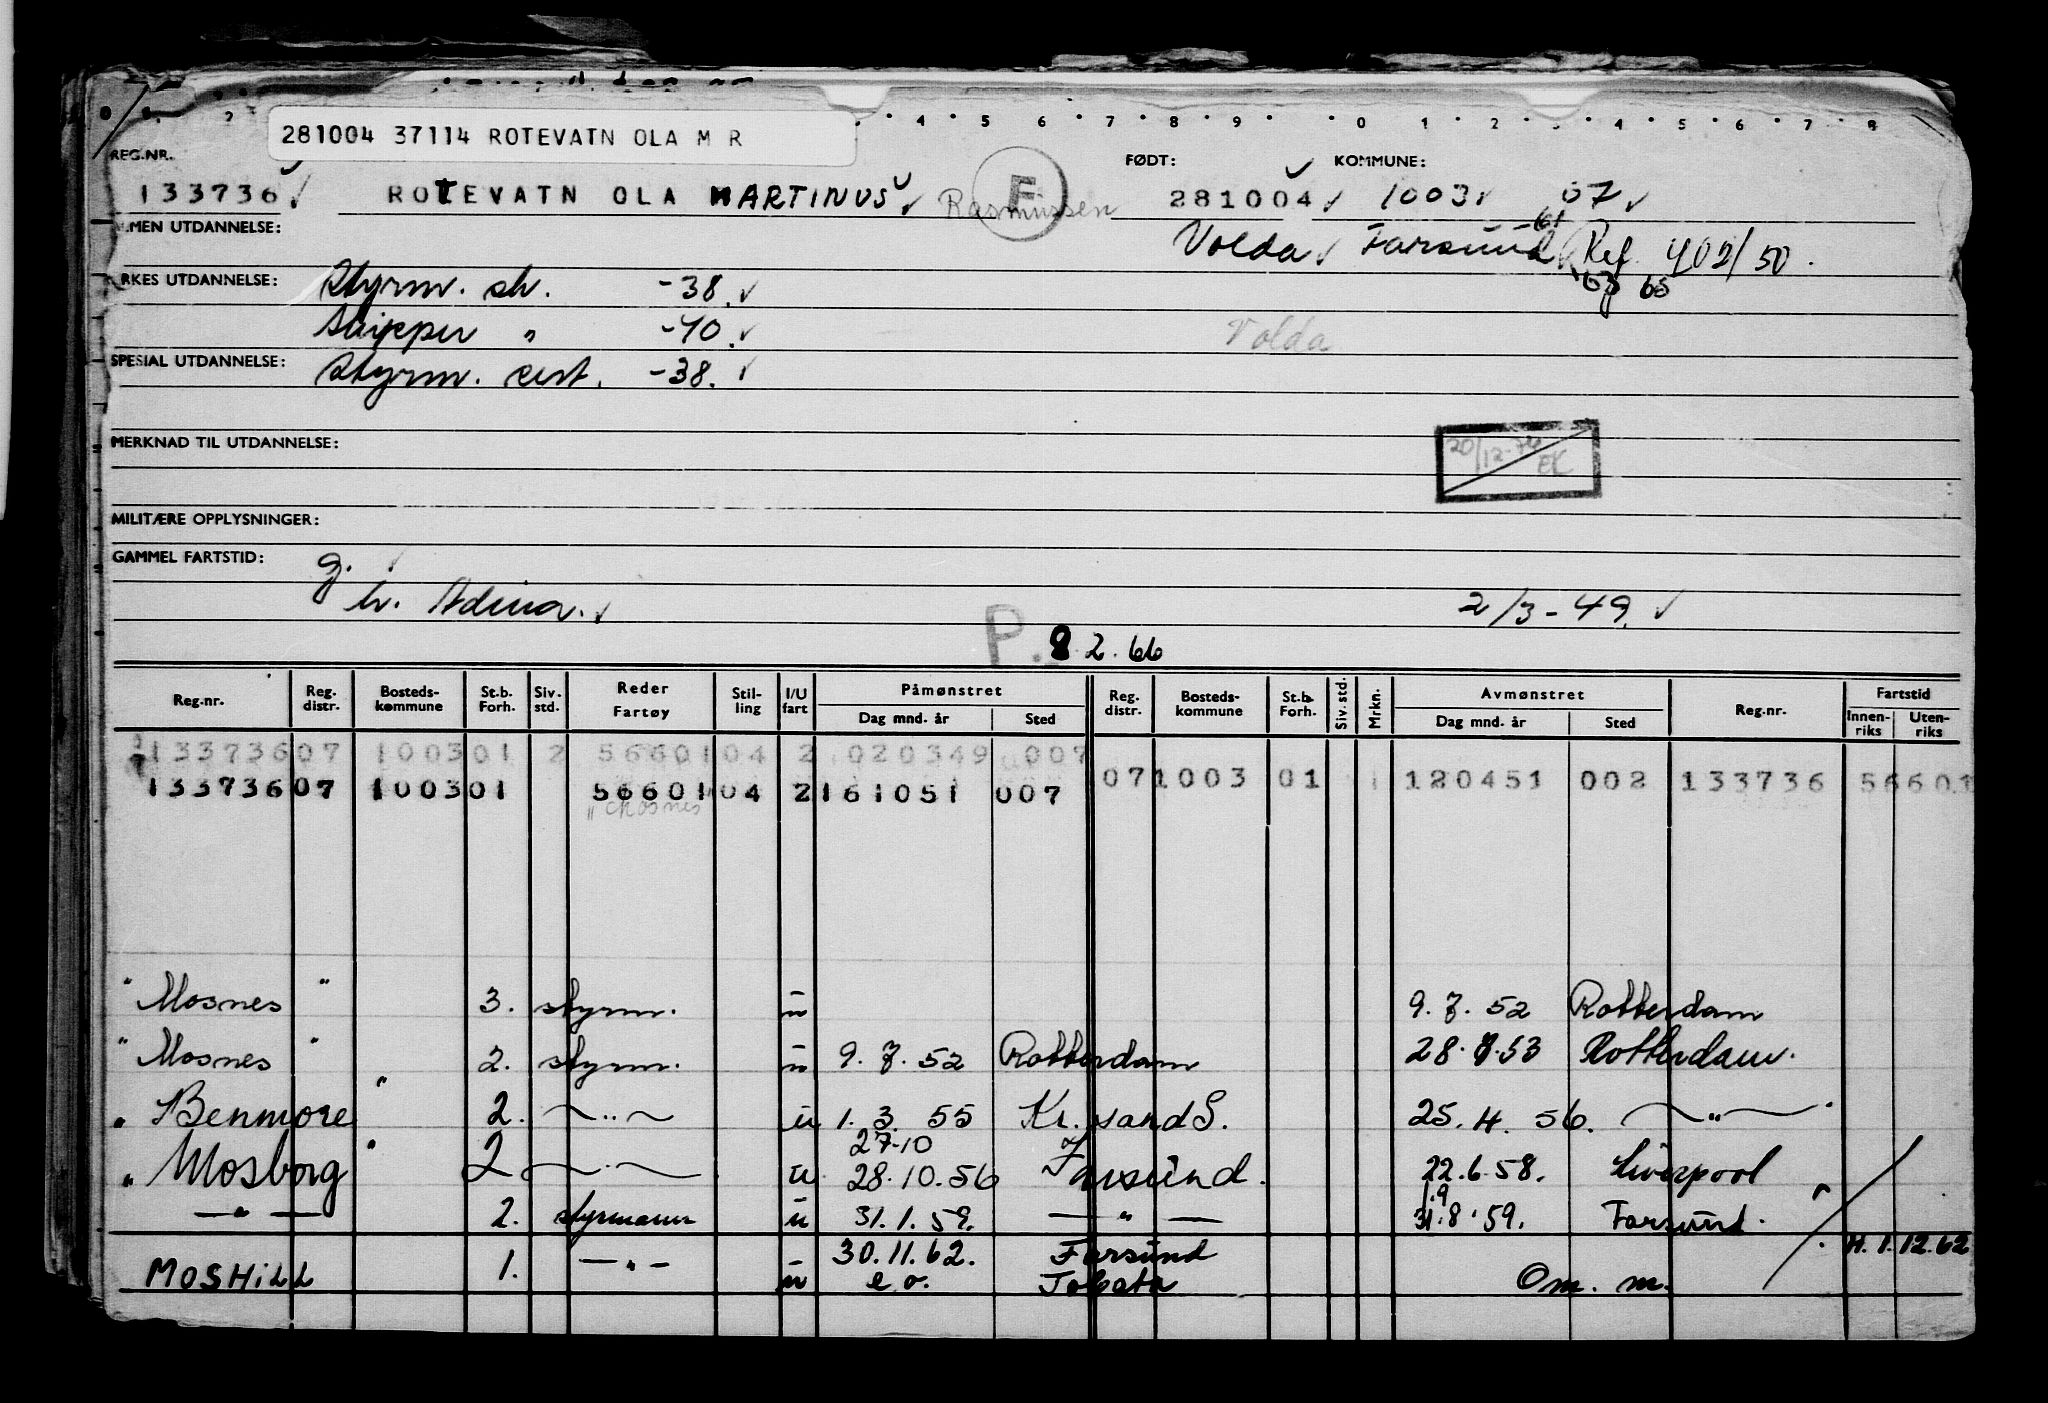 281004 37114 ROTEVATN OLA M R
REG.NR. FØDT: KOMMUNE:
133736 ROTEVATN OLA MARTINUS Rasmussen F 281004 1003 07
MEN UTDANNELSE: Volda Farsund 61 Ref. 402/50.
RKES UTDANNELSE: Styrm. sk. -38. 63 65
Skipper " -40. Volda
SPESIAL UTDANNELSE: Styrm. cert. -38.
MERKNAD TIL UTDANNELSE: 20/12-74 EK
MILITÆRE OPPLYSNINGER:
GAMMEL FARTSTID: g.
h. Adina. 2/3-49.
P. 8.2.66
Reg.nr. Reg. distr. Bosteds- kommune St.b. Forh. Siv. std. Reder Fartøy Stil- ling I/U fart Påmønstret Dag mnd. år Sted Reg. distr. Bosteds- kommune St.b. Forh. Siv. std. Mrkn. Avmønstret Dag mnd. år Sted Reg.nr. Fartstid Innen- riks Uten- riks
133736 07 1003 01 2 56601 04 2 020349 007 07 1003 01 1 120451 002 133736 56601
133736 07 1003 01 56601 04 2 161051 007
"Mosnes
"Mosnes " 3. styrm. u 9.7.52 Rotterdam
"Mosnes " 2. styrm. u 9.7.52 Rotterdam 28.7.53 Rotterdam.
"Benmore " 2. —"— u 1.3.55 Kr.sand S. 25.4.56. —"—
27-10
"Mosborg " 2 —"— u 28.10.56 Farsund. 22.6.58. Liverpool "
1.9
—"— 2. styrmann u 31.1.59. —"— 31.8.59. Farsund.
MOSHILL 1. —"— u 30.11.62. Farsund H. 1.12.62
e.o. Tobata Om. m.